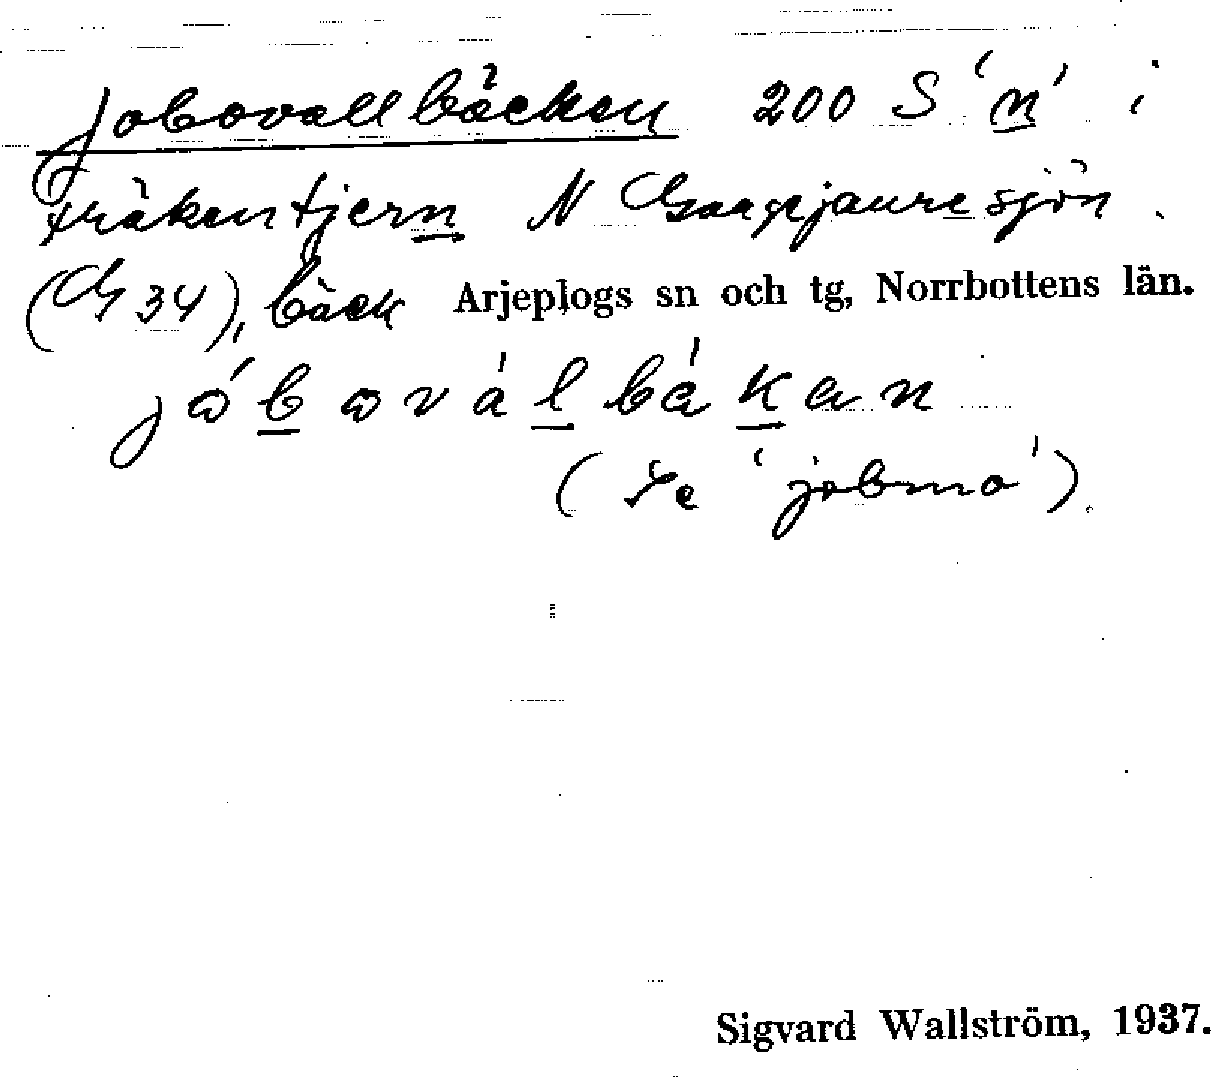 Jobovallbäcken 200 S 'n' i
fräkentjern N Gargejauresjön.
(G 34), bäck Arjeplogs sn och tg, Norrbottens län.
jóbovàlbàkan
(Se 'jobmo').
Sigvard Wallström, 1937.